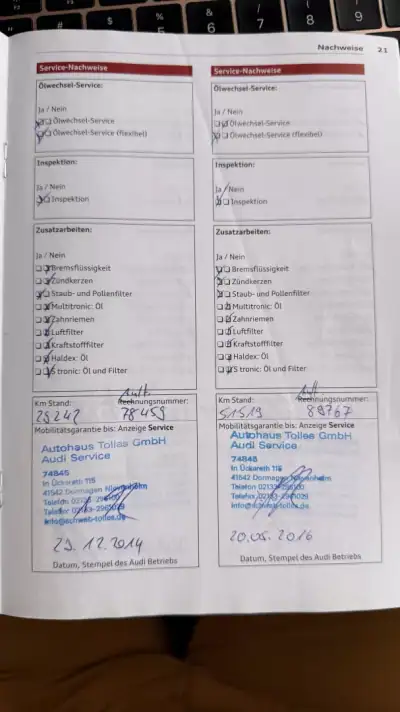 Nachweise 21
Service-Nachweise
Ölwechsel-Service:
Ja / Nein
Ölwechsel-Service
Ölwechsel-Service (flexibel)
Inspektion:
Ja / Nein
Inspektion
Zusatzarbeiten:
Ja / Nein
Bremsflüssigkeit
Zündkerzen
Staub- und Pollenfilter
Multitronic: Öl
Zahnriemen
Luftfilter
Kraftstofffilter
Haldex: Öl
S tronic: Öl und Filter
Km Stand: Rechnungsnummer:
29242 78459
Mobilitätsgarantie bis: Anzeige Service
Autohaus Tolles GmbH
Audi Service
74845
In Ückerath 115
41542 Dormagen Nievenheim
Telefon
Telefax
info@schwab-tolles.de
29.12.2014
Datum, Stempel des Audi Betriebs
Service-Nachweise
Ölwechsel-Service:
Ja / Nein
Ölwechsel-Service
Ölwechsel-Service (flexibel)
Inspektion:
Ja / Nein
Inspektion
Zusatzarbeiten:
Ja / Nein
Bremsflüssigkeit
Zündkerzen
Staub- und Pollenfilter
Multitronic: Öl
Zahnriemen
Luftfilter
Kraftstofffilter
Haldex: Öl
S tronic: Öl und Filter
Km Stand: Rechnungsnummer:
51519 89767
Mobilitätsgarantie bis: Anzeige Service
Autohaus Tolles GmbH
Audi Service
74845
In Ückerath 115
41542 Dormagen
Telefon
Telefax
20.05.2016
Datum, Stempel des Audi Betriebs